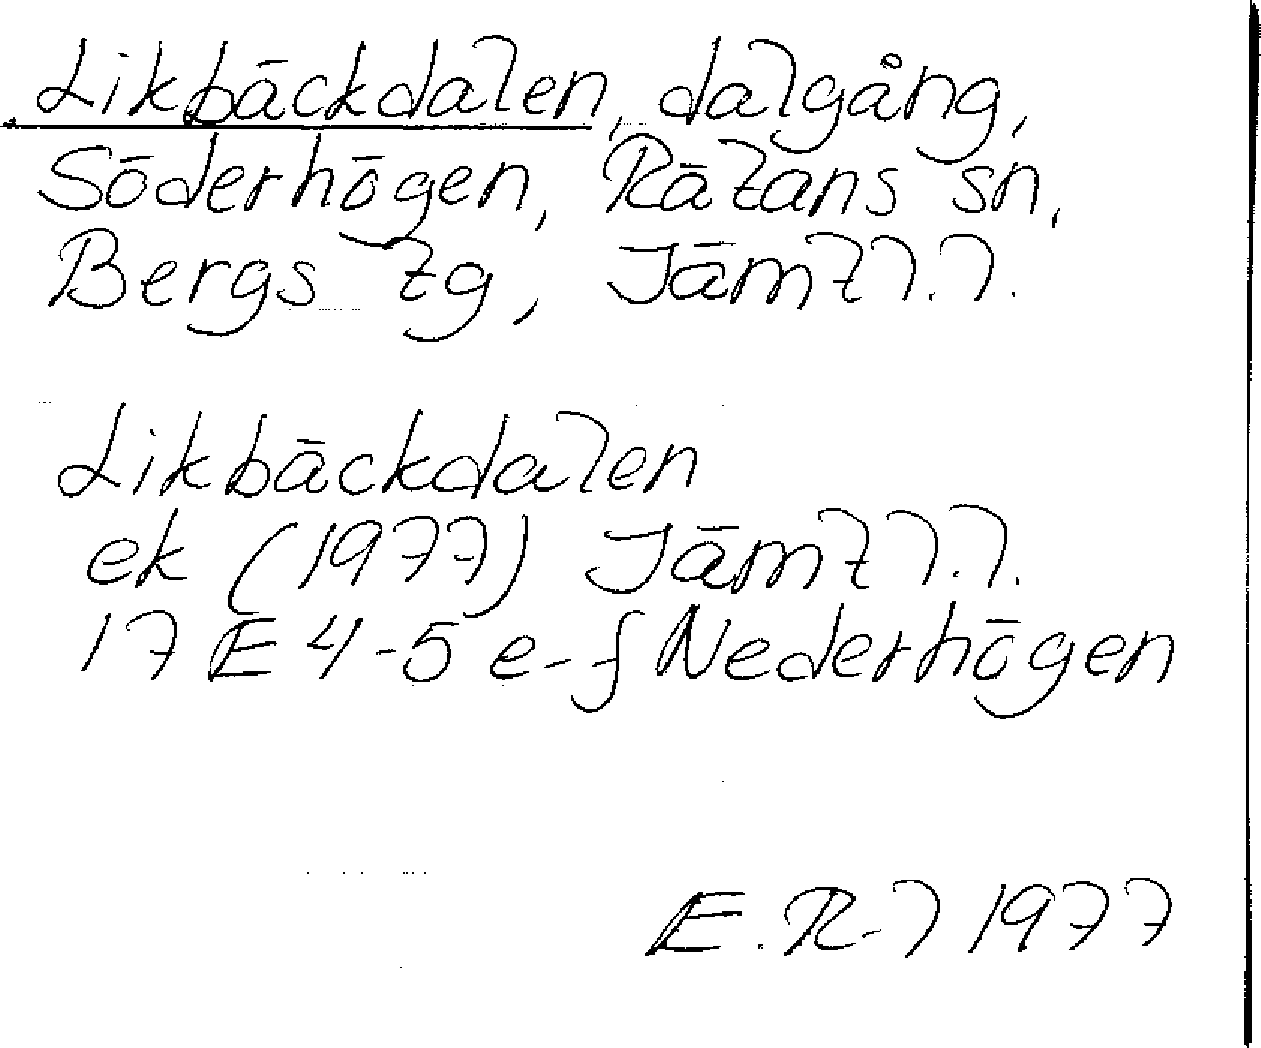 Likbäckdalen, dalgång,
Söderhögen, Rätans sn,
Bergs tg, Jämtl.l.
Likbäckdalen
ek (1977) Jämtl.l.
17 E 4-5 e-f Nederhögen
E. R-l 1977